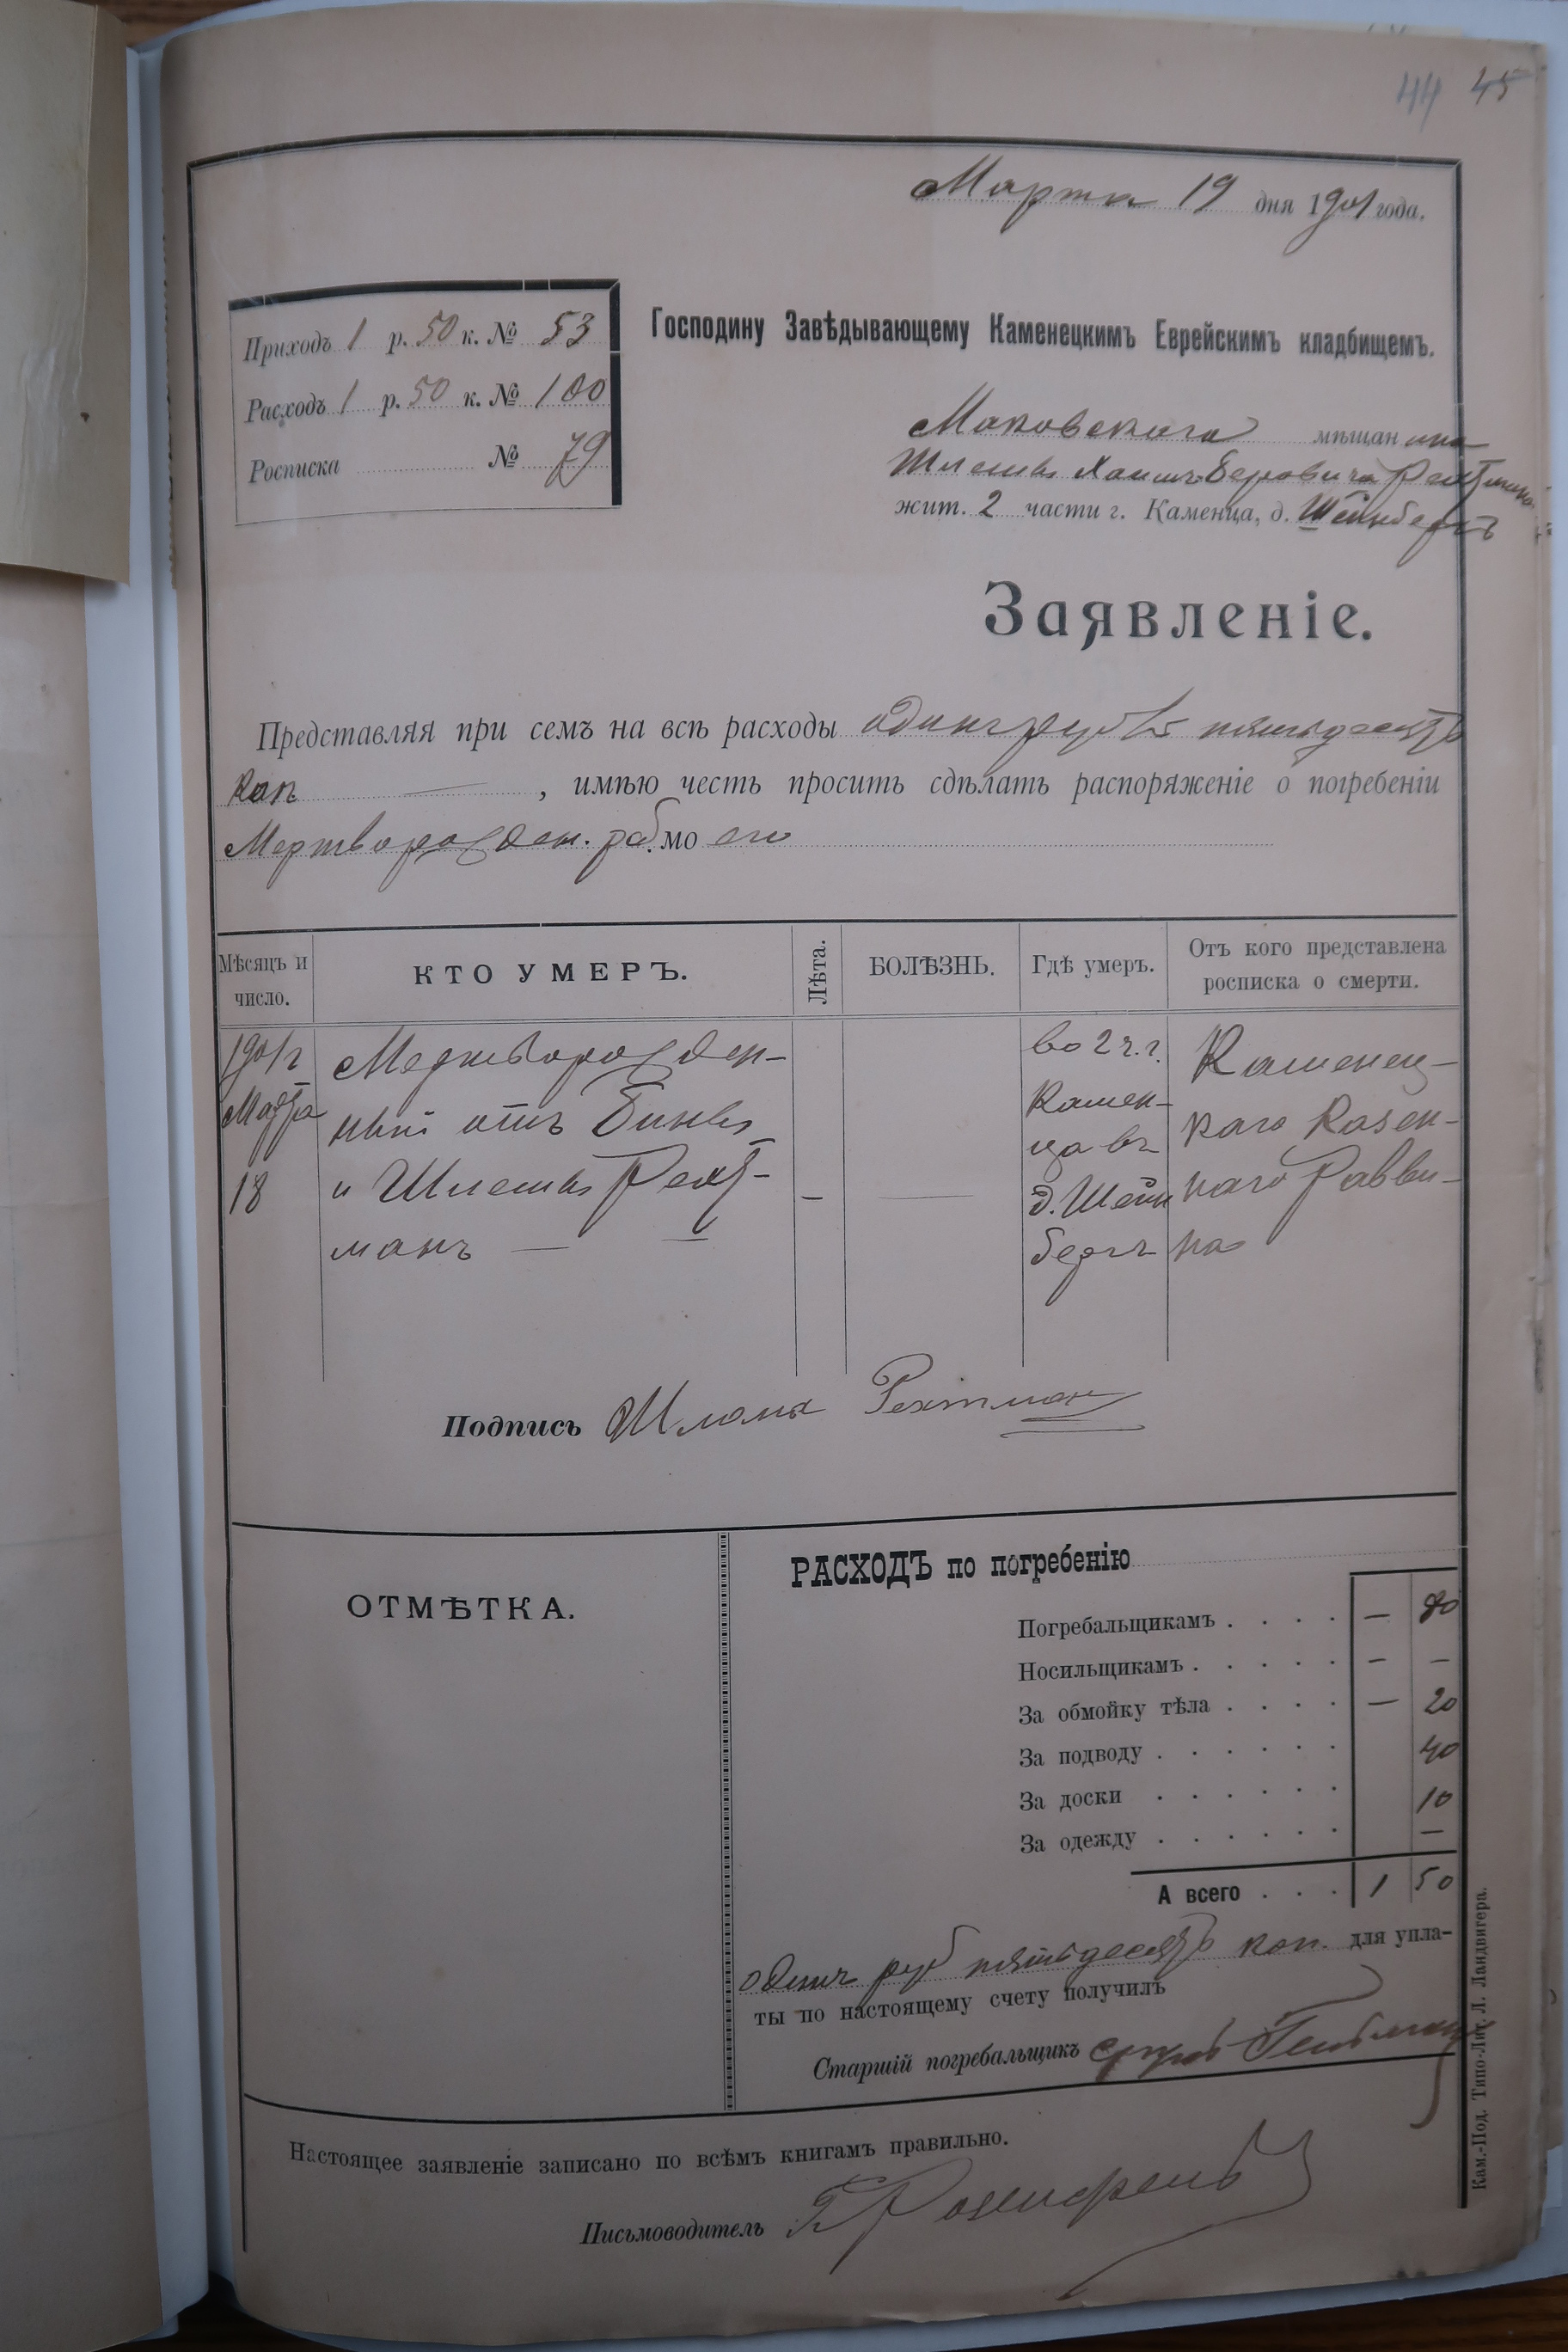 44 45
Марта 19 дня 1901 года.
Приходъ 1 р. 50 к. № 53
Расходъ 1 р. 50 к. № 100
Росписка № 79
Господину Завѣдывающему Каменецкимъ Еврейскимъ кладбищемъ.
Маковскаго мѣщанина
Шлемы Хаимъ-Беровича Рехтмана
жит. 2 части г. Каменца, д. Шейнбергъ
Заявленіе.
Представляя при семъ на всѣ расходы одинъ рубль пятьдесятъ
коп , имѣю честь просить сдѣлать распоряженіе о погребеніи
Мертворожден. реб. моего
Мѣсяцъ и число.
КТО УМЕРЪ.
Лѣта.
БОЛѢЗНЬ.
Гдѣ умеръ.
Отъ кого представлена росписка о смерти.
1901 г
Марта
18
Мертворожден-
ный отъ
и Шлемы Рехт-
манъ —
—
—
во 2 ч. г.
Камен-
ца въ
д. Шейн
бергъ
Каменец-
каго Казен-
наго Равви-
на
Подпись Шлома Рехтман
ОТМѢТКА.
РАСХОДЪ по погребенію
Погребальщикамъ . . . . — 80
Носильщикамъ . . . . . — —
За обмойку тѣла . . . . — 20
За подводу . . . . . . 40
За доски . . . . . . 10
За одежду . . . . . . —
А всего . . . 1 50
одинъ руб пятьдесятъ коп. для упла-
ты по настоящему счету получилъ
Старшій погребальщикъ
Настоящее заявленіе записано по всѣмъ книгамъ правильно.
Письмоводитель
Кам.-Под. Типо-Лит. Л. Ландвигера.